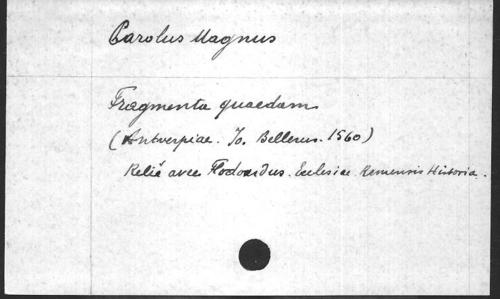 Carolus Magnus
Fragmenta quaedam
(Antverpiae. Jo. Bellerus. 1560)
Relié avec Flodoardus. Ecclesiae Remensis Historia.